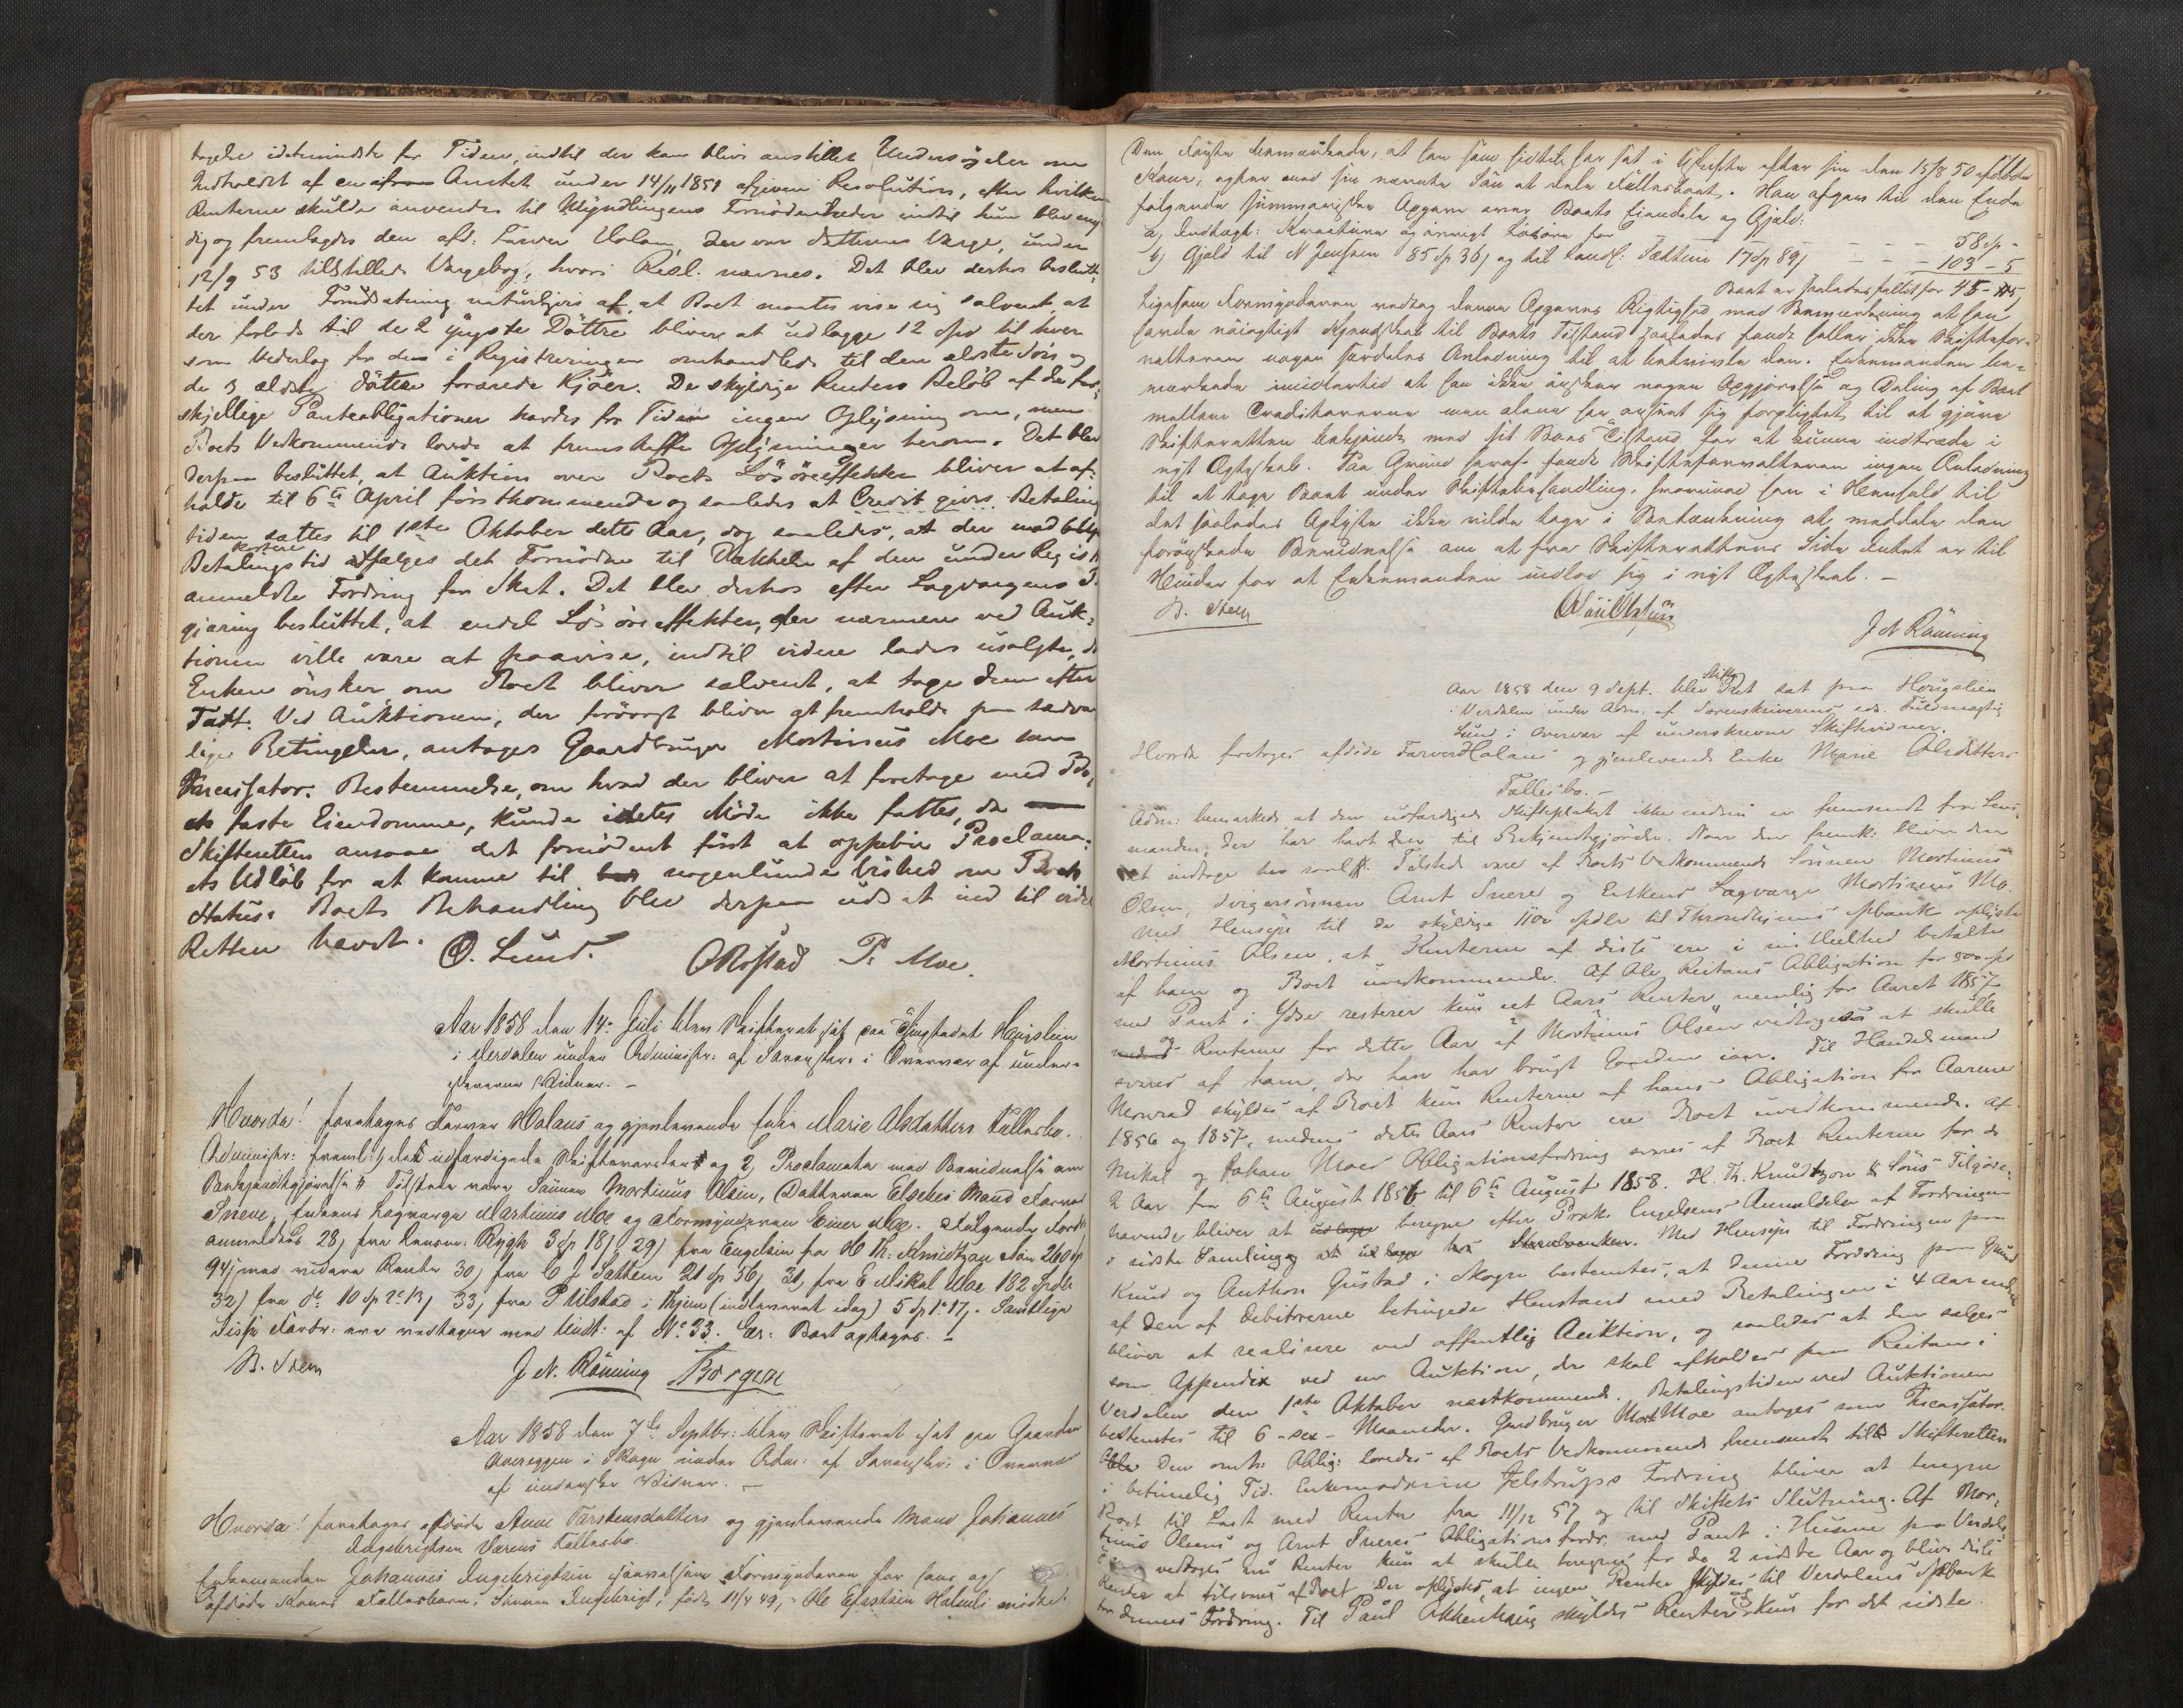 tagelse idetmindste for Tiden, indtil der kan blive anstillet Undersøgelser om
Indholdet af en Amtet under 14/11 1851 afgiven Resolution, efter hvilken
Renterne skulde anvendes til Myndlingens Fornødenheder indtil hun blev myn
dig og fremlagdes den afd: Farver Holan, der var Datterens Værge, under
12/9 53 tilstillede Værgebog, hvori Resol. nævnes. Det blev derhos beslut-
tet under Forudsætning naturligvis af, at Boet maatte vise sig solvent, at
der forlods til de 2 yngste Døttre bliver at udlægge 12 Spd til hver
som Vederlag for den i Registreringen omhandlede til den ældste Søn og
de 3 ældste Døttre forærede Kjøer. De skyldige Renters Beløb af de for-
skjellige Panteobligationer havdes for Tiden ingen Oplysning om, men
Boets Vedkommende lovede at fremskaffe Oplysninger herom. Det blev
derpaa besluttet, at Auktion over Boets Løsøreeffekter bliver at af-
holde til 6te April førstkommende og saaledes at Credit gives. Betalings
tiden sættes til 1ste Oktober dette Aar, dog saaledes, at der mod
kortere
Betalingstid afsælges det Fornødne til Dækkelse af den under Regist
anmeldte Fordring for Skat. Det blev derhos efter Lagværgens
gjæring besluttet, at endel Løsøreeffekter, der nærmere ved Auk-
tionen ville være at paavise, indtil videre lades usolgte, da
Enken ønsker, om Boet bliver solvent, at tage dem efter
Taxt. Ved Auktionen, der forøvrigt bliver at fremholde paa sædvan
lige Betingelser, antages Gaardbruger Mortinus Moe som
Incassator. Bestemmelse, om hvad der bliver at foretage med Bo-
ets faste Eiendomme, kunde i dette Møde ikke fattes, da
Skifteretten ansaae det fornødent først at oppebie Proclama-
ets Udløb for at komme til nogenlunde Vished om Boets
Status. Boets Behandling blev derpaa udsat ind til videre
Retten hævet.
O. Lund. O Rostad P. Moe.
Aar 1858 den 14. Juli blev Skifteret sat paa Thingstedet Hougslien
i Verdalen under Administr: af Sorenskr: i Overvær af under-
skrevne Vidner. -
Hvorda! foretages Farver Holans og gjenlevende Enke Marie Olsdatters Fællesbo.
Administr: freml: 1, det udfærdigede Skiftevarslen og 2, Proclamata med Bevidnelse om
Bekjendtgjørelse. Tilstede vare Sønnen Mortinus Olsen, Datteren Elsches Mand Farver
Snene, Enkens Lagværge Martinus Moe og Formynderen Einer Moe. Følgende Fordr:
anmeldtes 28) fra Rygh 3 Sp 18 29) fra Engelsen fra H Th: Knudtzon Søn 260 Sp
94 med videre Renter 30) fra C J Sættem 21 Sp 56 31) fra E Mikal Moe 182 Spdlr
32) fra do 10 Sp 33) fra P Ulstad i Thjem (indleveret idag) 5 Sp 1 17. Samtlige
disse Fordr: ere vedtagne med Undt: af No 33. Boet optages. -
B. Stem J N. Rønning Borgen
Aar 1858 den 7de Septbr: blev Skifteret sat paa Gaarden
Overeggen i Skogn under Adm: af Sorenskr: i Overvær
af underskr Vidner. -
Hvorda! foretages afdøde Anne Torstensdatters og gjenlevende Mand Johannes
Ingebrigtsen Værens Fællesbo
Enkemanden Johannes Ingebrigtsen Formynderen for hans og
afdøde Kones Fællesbarn, Sønnen Ingebrigt, født 11/4 49, Ole Halmli mødte.
Den Første bemærkede, at han siden har sat i Uskiftet efter sin den 15/8 50 afdøde
Kone, agter med sin nævnte Søn at dele Fællesboet. Han afgav til den Ende
følgende summariske Opgave over Boets Eiendele og Gjæld:
a, Indtægt: Kreaturer og øvrigt Løsøre for - - - 58 Sp -
b, Gjæld til N Jenssen 85 Sp 36 og til Landh: Sættem 17 Sp 89 - - - 103 - 5
Boet er saaledes fallit for 45 - 5
Ligesom Formynderen vedtog denne Opgaves Rigtighed med Bemærkning at han
havde nøiagtigt Kjendskab til Boets Tilstand saaledes fandt heller ikke Skiftefor-
valteren nogen særdeles Anledning til at betvivle den. Enkemanden be-
mærkede imidlertid at han ikke ønsker nogen Opgjørelse og Deling af Boet
mellem Creditorerne men alene har anseet sig forpligtet til at gjøre
Skifteretten bekjendt med sit Boes Tilstand for at kunne indtræde i
nyt Ægteskab. Paa Grund heraf fandt Skifteforvalteren ingen Anledning
til at tage Boet under Skiftebehandling, hvorimod han i Henhold til
det saaledes Oplyste ikke vilde tage i Betænkning at meddele den
forønskede Bevidnelse om at fra Skifterettens Side Intet er til
Hinder for at Enkemanden indlod sig i nyt Ægteskab. -
B. Stem
J N Rønning
Skifte
Aar 1858 den 9 Sept. blev Ret sat paa Hougslien
i Verdalen under Adm. af Sorenskriverens eds. Fuldmægtig
Lund i Overvær af underskrevne Skiftevidner.
Hvorda foretoges afdøde Farver Holans og gjenlevende Enke Marie Olsdatters
Fællesbo. -
Adm: bemærkede at den udfærdigede Skifteplakat ikke endnu er fremsendt fra Lens-
manden, der har havt den til Bekjendtgjørelse. Naar den fremk: bliver den
at indtage her saal. Tilstede vare af Boets Vedkommende Sønnen Mortinus
Olsen, Svigersønnen Arnt Snere og Enkens Lagværge Mortinus Mo.
Med Hensyn til de skyldige 1100 Spdlr til Throndhjems Spbank oplyste
Mortinus Olsen, at Renterne af disse ere i sin Heelhed betalte
af ham og Boet uvedkommende. Af Ole Reitans Obligation for 500 Spd
med Pant i Ydse resterer kun eet Aars Renter, nemlig for Aaret 1857
Renterne for dette Aar af Mortinus Olsen vedtoges at skulle
svares af ham, da han har brugt Eiendommen iaar. Til Handelsmand
Monrad skyldes af Boet kun Renterne af hans Obligation for Aarene
1856 og 1857, medens dette Aars Renter ere Boet uvedkommende. Af
Mikal og Johan Moes Obligationsfordring svares af Boet Renterne for de
2 Aar fra 6te August 1856 til 6te August 1858. H. Th. Knudtzon & Søns Tilgode-
havende bliver at beregne efter Prok. Engelsens Anmeldelse af Fordringen
i sidste Samling. Med Hensyn til Fordringen paa
Knud og Anthon Gustad i Skogn bestemtes, at denne Fordring paa Grund
af den af Debitorerne betingede Henstand med Betalingen i 4 Aar endnu
bliver at realisere ved offentlig Auktion, og saaledes at den sælges
som Appendix ved en Auktion, der skal afholdes paa Reitan i
Verdalen den 1ste Oktober næstkommende. Betalingstiden ved Auktionen
bestemtes til 6 - sex - Maaneder. Gaardbruger Mort Moe antages som Incassator.
Den omh: Oblig: lovedes af Boets Vedkommende fremsendt til Skifteretten
i betimelig Tid. Enkemadame Jelstrups Fordring bliver at beregne
Boet til Last med Renter fra 11/12 57 og til Skiftets Slutning. Af Mor-
tinus Olsens og Arnt Sneres Obligationsfordr. med Pant i Husene paa Verdals
vedtoges nu Renter kun at skulle beregnes for de 2 sidste Aar og blive disse
Renter at tilsvares af Boet. Der oplystes, at ingen Renter skyldes til Verdalens Spbank
for dennes Fordring. Til Paul Okkenhaug skyldes Renter kun for det sidste